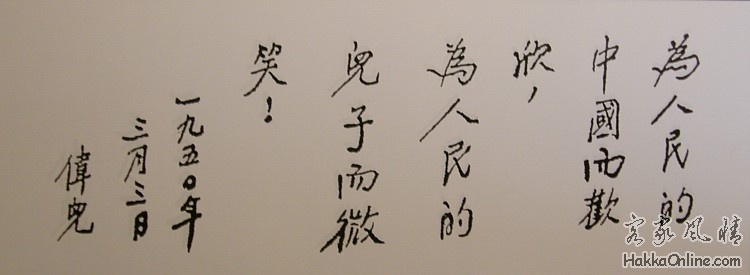 為人民的
中國而歡
欣，
為人民的
兒子而微
笑！
一九五〇年
三月三日
偉兒
客家風情
HakkaOnline.com